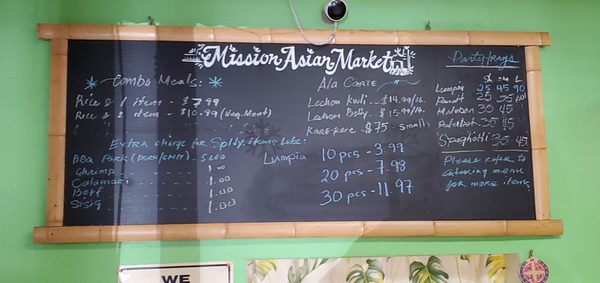 Mission Asian Market
Combo Meals:
Rice & 1 item - $7.99
Rice & 2 item - $10.99 (Veg. Meat)
Extra charge for Split items Like:
BBQ Pork
Shrimp 1.00
Calamari 1.00
Beef 1.00
Sisig 1.00
Ala Carte
Lechon Kwli - $14.99/lb.
Lechon Belly - $15.99/lb.
Kare-Kare $75 - small
Lumpia 10 pcs - 3.99
20 pcs - 7.98
30 pcs - 11.97
Party trays
S M L
Lumpia 25 45 90
Pancit 25 35
Malabon 35 45
Palabok 35 45
Spaghetti 35 45
Please refer to
catering menu
for more items
WE